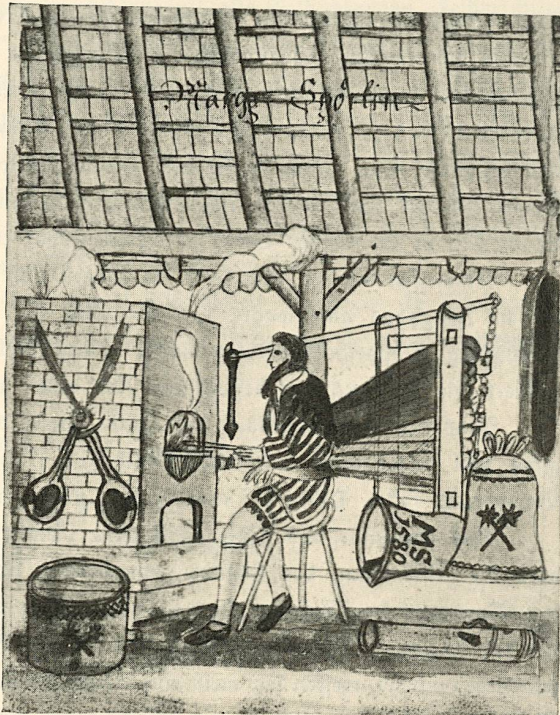 Marx Spörlin
MS
1580